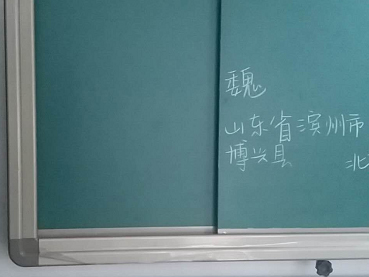 魏
山东省滨州市
博兴县 北